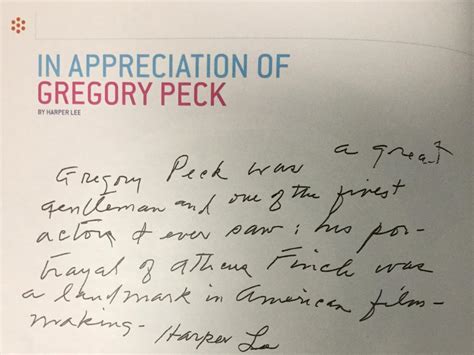 IN APPRECIATION OF
GREGORY PECK
BY HARPER LEE
Gregory Peck was a great
gentleman and one of the finest
actors I ever saw; his por-
trayal of Atticus Finch was
a landmark in American film-
making- Harper Lee